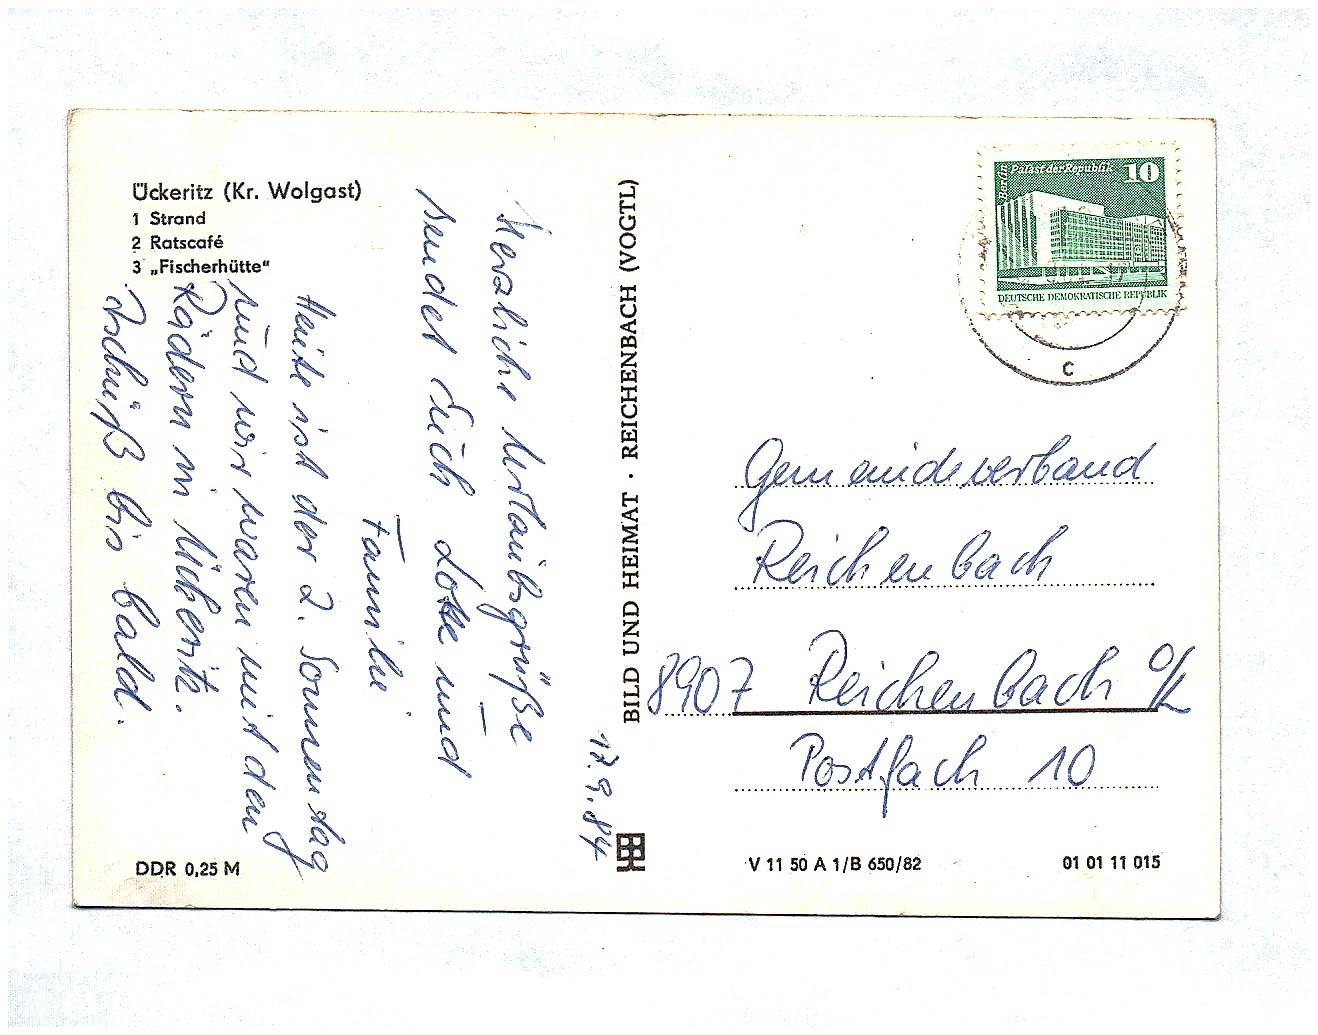 Ückeritz (Kr. Wolgast)
1 Strand
2 Ratscafé
3 „Fischerhütte“
17.9.84
Herzliche Urlaubsgrüße
sendet Euch Lotte und
Familie
Heute ist der 2. Sonnentag
und wir waren mit den
Rädern in Ückeritz.
Tschüß bis bald.
DDR 0,25 M
BILD UND HEIMAT · REICHENBACH (VOGTL)
Berlin Palast der Republik 10
DEUTSCHE DEMOKRATISCHE REPUBLIK
c
Gemeindeverband
Reichenbach
8907 Reichenbach O/L
Postfach 10
V 11 50 A 1/B 650/82
01 01 11 015